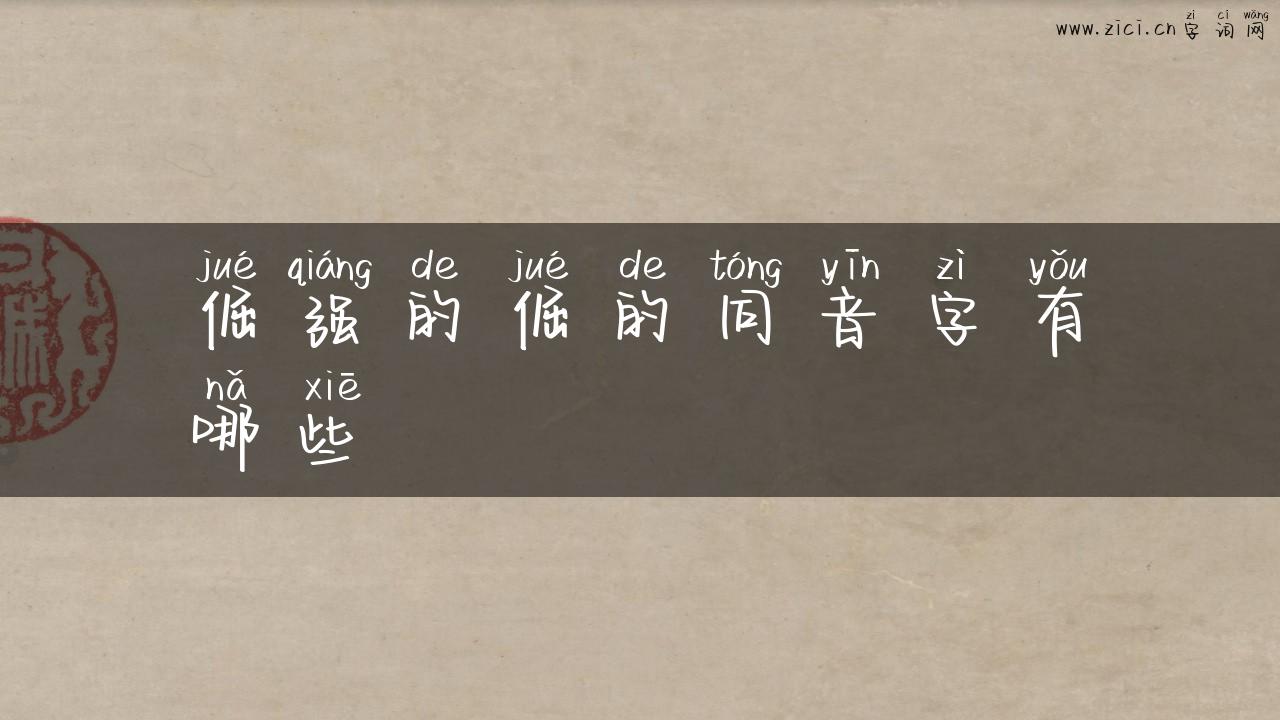 zì cí wǎng
www.zici.cn 字词网
jué qiáng de jué de tóng yīn zì yǒu
倔强的倔的同音字有
nǎ xiē
哪些